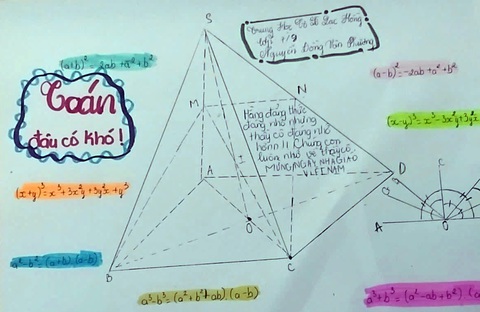 S
Trung Học Cơ Sở Lạc Hồng
Lớp
Nguyễn Đông Vân Phương
(a+b)² = 2ab + a² + b²
(a-b)² = -2ab + a² + b²
Toán
đâu có khó!
M
N
Hằng đẳng thức
đáng nhớ nhưng
thầy cô đáng nhớ
hơn!! Chúng con
luôn nhớ về thầy cô
MỪNG NGÀY NHÀ GIÁO
VIETNAM
(x-y)³ = x³ - 3x²y + 3xy²
I
A
D
C
(x+y)³ = x³ + 3x²y + 3y²x + y³
O
A
O
a² - b² = (a+b).(a-b)
B
C
a³ - b³ = (a² + b² + ab).(a-b)
a³ + b³ = (a² - ab + b²).(a